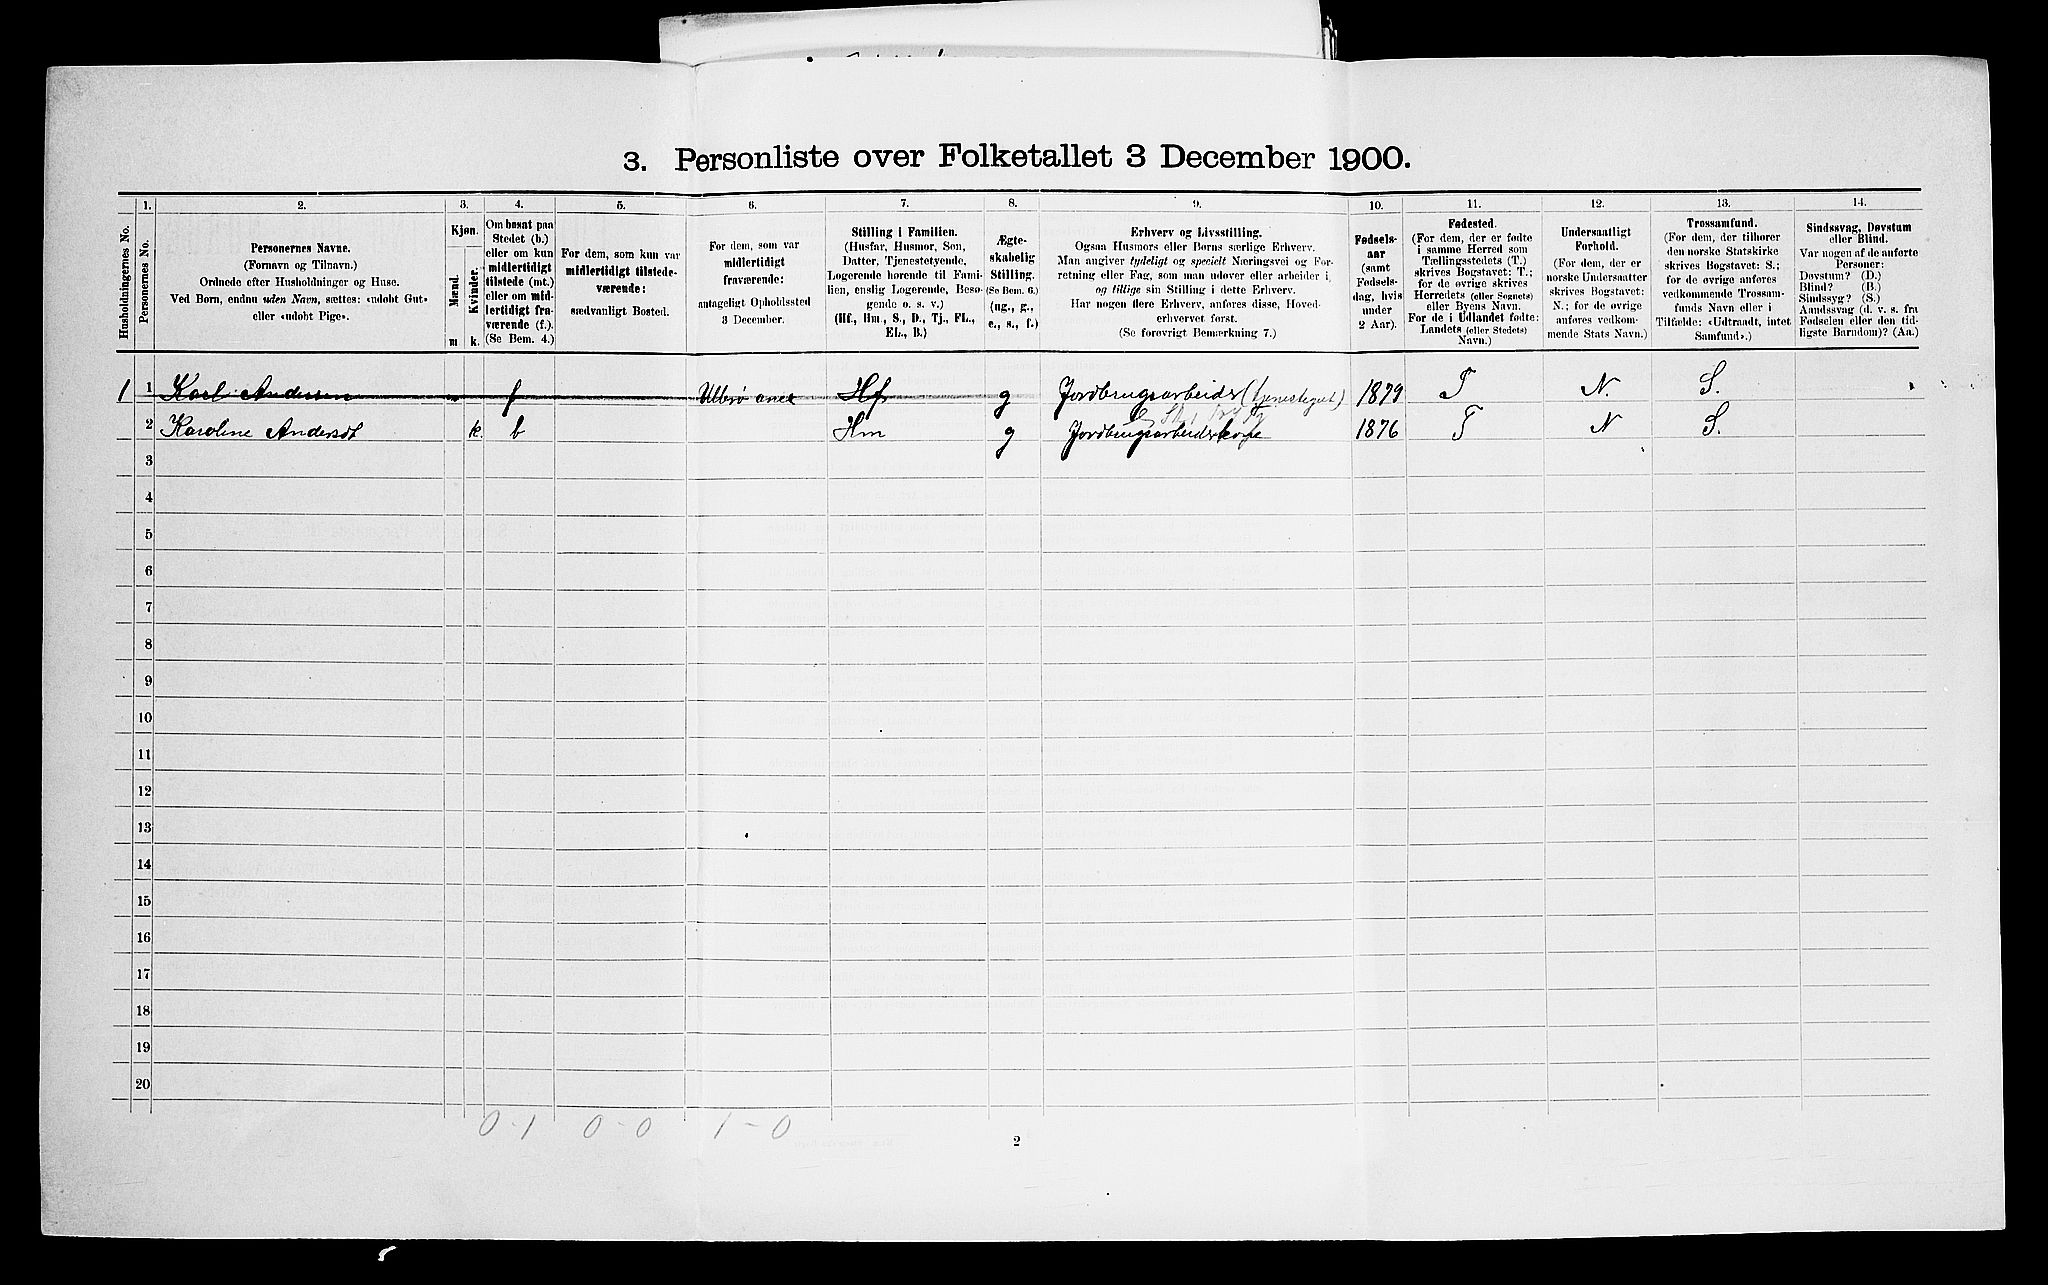 3. Personliste over Folketallet 3 December 1900.
Husholdningernes No.
1.
Personernes No.
2.
Personernes Navne.
(Fornavn og Tilnavn.)
Ordnede efter Husholdninger og Huse.
Ved Børn, endnu uden Navn, sættes: «udøbt Gut»
eller «udøbt Pige».
3.
Kjøn.
Mænd.
Kvinder.
m
k.
4.
Om bosat paa
Stedet (b.)
eller om kun
midlertidigt
tilstede (mt.)
eller om mid-
lertidigt fra-
værende (f.).
(Se Bem. 4.)
5.
For dem, som kun var
midlertidigt tilstede-
værende:
sædvanligt Bosted.
6.
For dem, som var
midlertidigt
fraværende:
antageligt Opholdssted
3 December.
7.
Stilling i Familien.
(Husfar, Husmor, Søn,
Datter, Tjenestetyende,
Logerende hørende til Fami-
lien, enslig Logerende, Besø-
gende o. s. v.)
(Hf., Hm., S., D., Tj., FL.,
EL., B.)
8.
Ægte-
skabelig
Stilling.
(Se Bem. 6.)
(ug., g.,
e., s., f.)
9.
Erhverv og Livsstilling.
Ogsaa Husmors eller Børns særlige Erhverv.
Man angiver tydeligt og specielt Næringsvei og For-
retning eller Fag, som man udøver eller arbeider i,
og tillige sin Stilling i dette Erhverv.
Har nogen flere Erhverv, anføres disse, Hoved-
erhvervet først.
(Se forøvrigt Bemærkning 7.)
10.
Fødsels-
aar
(samt
Fødsels-
dag, hvis
under
2 Aar).
11.
Fødested.
(For dem, der er fødte
i samme Herred som
Tællingsstedets (T.)
skrives Bogstavet: T.;
for de øvrige skrives
Herredets (eller Sognets)
eller Byens Navn.
For de i Udlandet fødte:
Landets (eller Stedets)
Navn.)
12.
Undersaatligt
Forhold.
(For dem, der er
norske Undersaatter
skrives Bogstavet:
N.; for de øvrige
anføres vedkom-
mende Stats Navn.)
13.
Trossamfund.
(For dem, der tilhører
den norske Statskirke
skrives Bogstavet: S.;
for de øvrige anføres
vedkommende Trossam-
funds Navn eller i
Tilfælde: «Udtraadt, intet
Samfund».)
14.
Sindssvag, Døvstum
eller Blind.
Var nogen af de anførte
Personer:
Døvstum? (D.)
Blind? (B.)
Sindssyg? (S.)
Aandssvag (d. v. s. fra
Fødselen eller den tid-
ligste Barndom)? (Aa.)
1 1 Karl Andersen f Hf g Jordbrugsarbeider (tjenestegut) 1879 T N. S.
2 Karoline Andersdt k. b Hm g Jordbrugsarbeiderkone 1876 T N S.
3
4
5
6
7
8
9
10
11
12
13
14
15
16
17
18
19
20
0-1 0-0 1-0
2